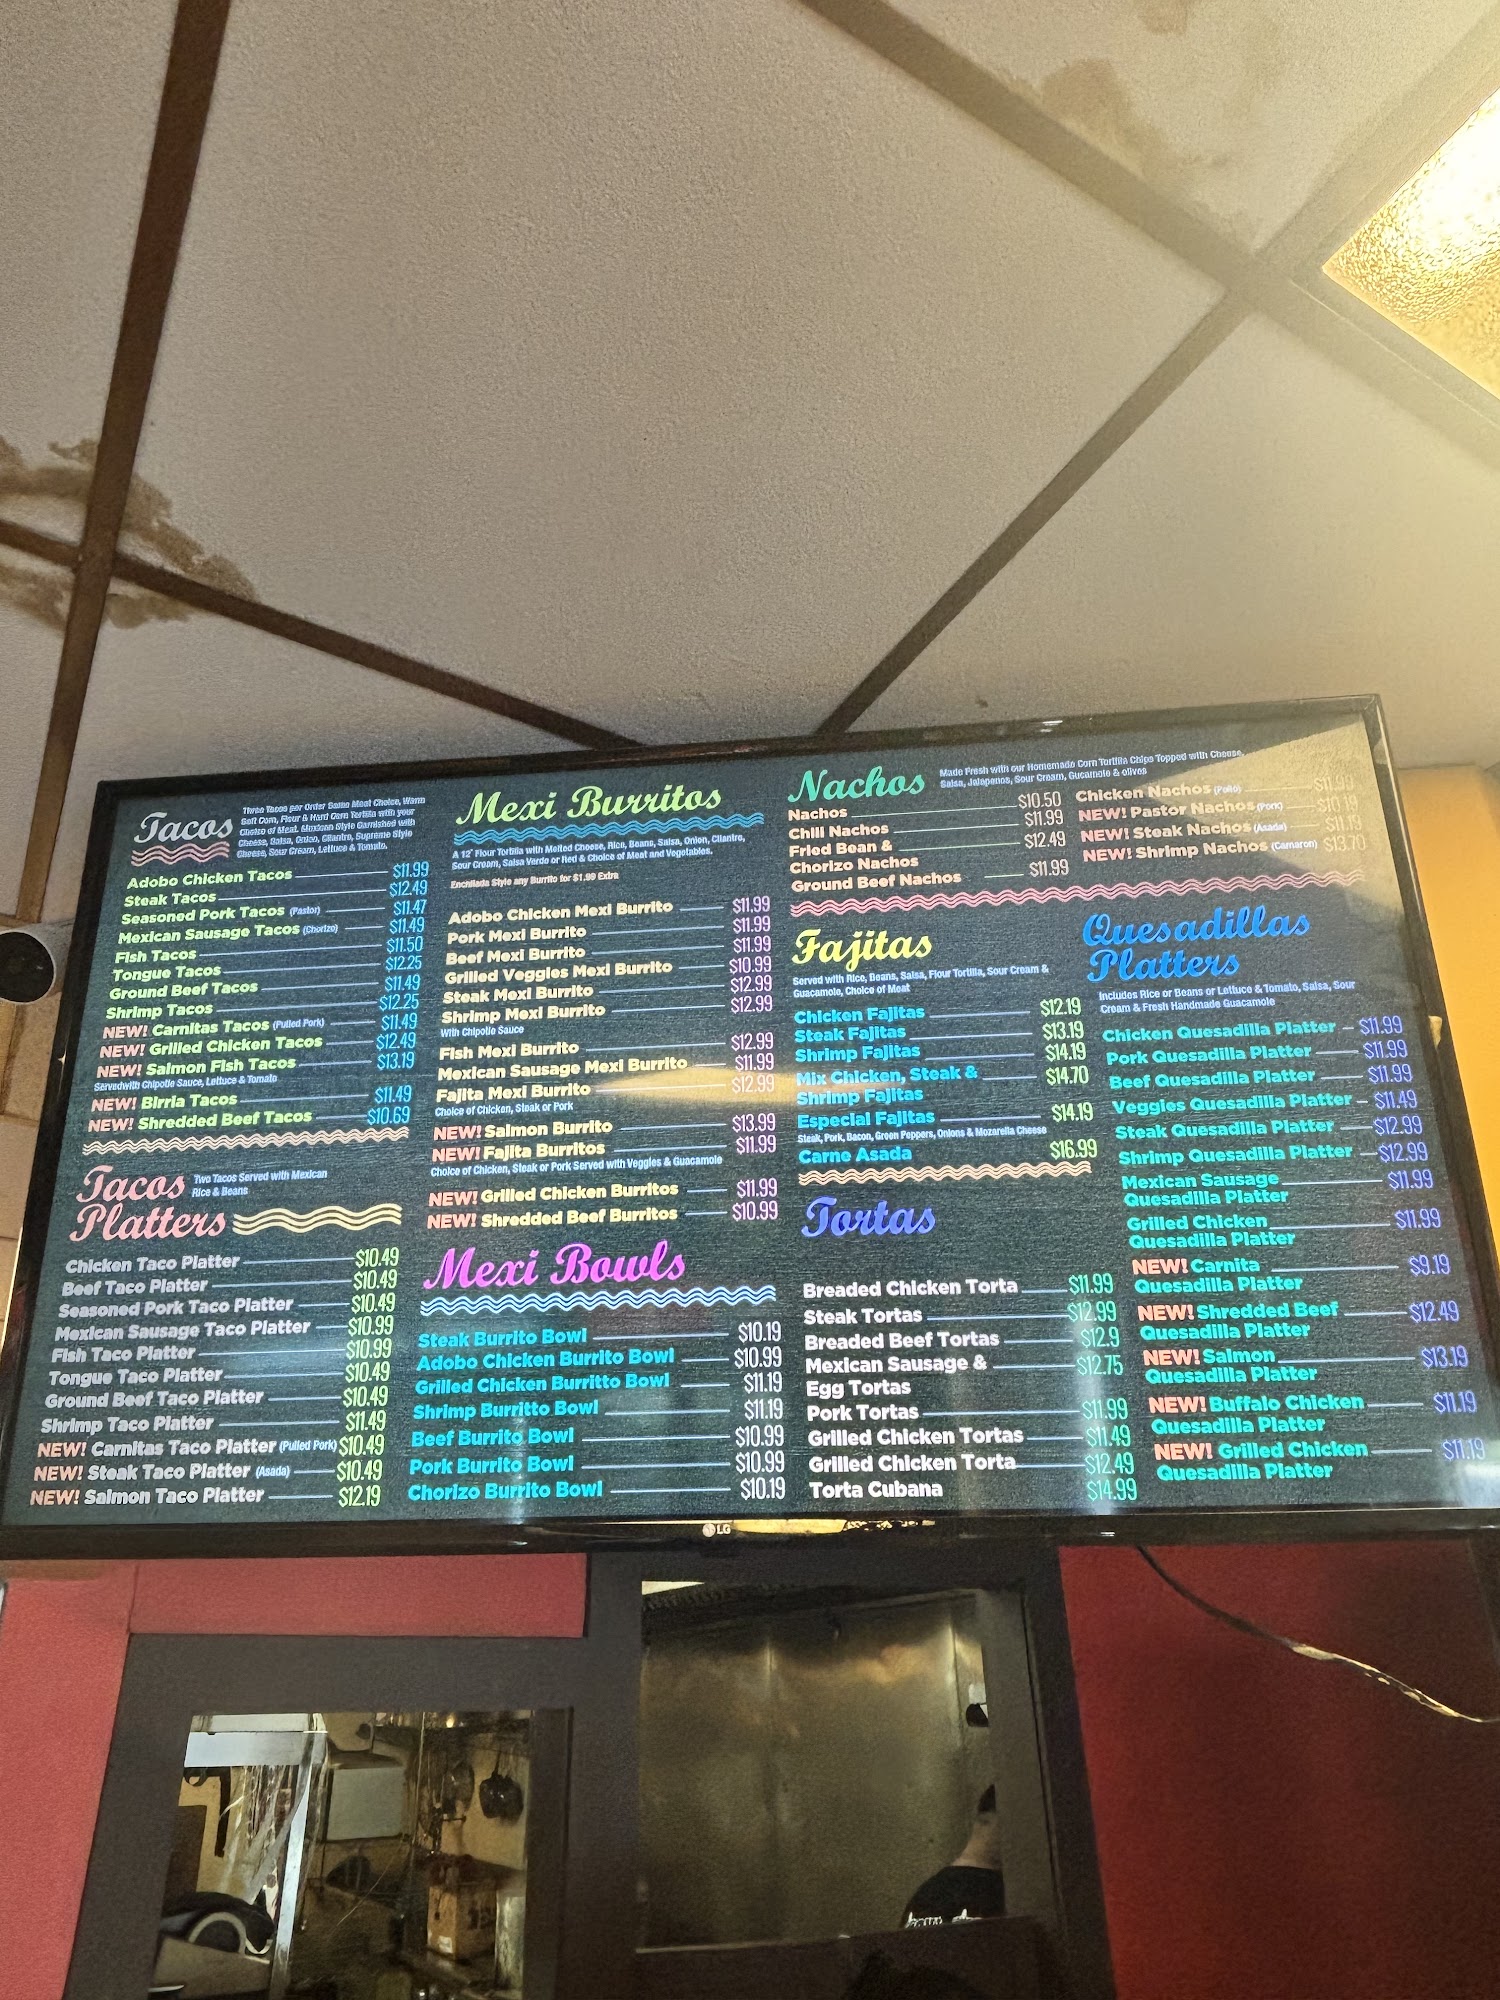 Tacos
Three Tacos per Order Same Meat Choice, Warm
Soft Corn, Flour & Hard Corn Tortilla with your
Choice of Meat. Mexican Style Garnished with
Cheese, Salsa, Onion, Cilantro, Supreme Style
Cheese, Sour Cream, Lettuce & Tomato.
Adobo Chicken Tacos $11.99
Steak Tacos $12.49
Seasoned Pork Tacos (Pastor) $11.47
Mexican Sausage Tacos (Chorizo) $11.49
Fish Tacos $11.50
Tongue Tacos $12.25
Ground Beef Tacos $11.49
Shrimp Tacos $12.25
NEW! Carnitas Tacos (Pulled Pork) $11.49
NEW! Grilled Chicken Tacos $12.49
NEW! Salmon Fish Tacos $13.19
Servedwith Chipotle Sauce, Lettuce & Tomato
NEW! Birria Tacos $11.49
NEW! Shredded Beef Tacos $10.69
Tacos
Platters
Two Tacos Served with Mexican
Rice & Beans
Chicken Taco Platter $10.49
Beef Taco Platter $10.49
Seasoned Pork Taco Platter $10.49
Mexican Sausage Taco Platter $10.99
Fish Taco Platter $10.99
Tongue Taco Platter $10.49
Ground Beef Taco Platter $10.49
Shrimp Taco Platter $11.49
NEW! Carnitas Taco Platter (Pulled Pork) $10.49
NEW! Steak Taco Platter (Asada) $10.49
NEW! Salmon Taco Platter $12.19
Mexi Burritos
A 12" Flour Tortilla with Melted Cheese, Rice, Beans, Salsa, Onion, Cilantro,
Sour Cream, Salsa Verde or Red & Choice of Meat and Vegetables.
Enchilada Style any Burrito for $1.99 Extra
Adobo Chicken Mexi Burrito $11.99
Pork Mexi Burrito $11.99
Beef Mexi Burrito $11.99
Grilled Veggies Mexi Burrito $10.99
Steak Mexi Burrito $12.99
Shrimp Mexi Burrito $12.99
With Chipotle Sauce
Fish Mexi Burrito $12.99
Mexican Sausage Mexi Burrito $11.99
Fajita Mexi Burrito $12.99
Choice of Chicken, Steak or Pork
NEW! Salmon Burrito $13.99
NEW! Fajita Burritos $11.99
Choice of Chicken, Steak or Pork Served with Veggies & Guacamole
NEW! Grilled Chicken Burritos $11.99
NEW! Shredded Beef Burritos $10.99
Mexi Bowls
Steak Burrito Bowl $10.19
Adobo Chicken Burrito Bowl $10.99
Grilled Chicken Burritto Bowl $11.19
Shrimp Burritto Bowl $11.19
Beef Burrito Bowl $10.99
Pork Burrito Bowl $10.99
Chorizo Burrito Bowl $10.19
Nachos
Made Fresh with our Homemade Corn Tortilla Chips Topped with Cheese,
Salsa, Jalapenos, Sour Cream, Gucamole & olives
Nachos $10.50
Chili Nachos $11.99
Fried Bean & $12.49
Chorizo Nachos
Ground Beef Nachos $11.99
Chicken Nachos (Pollo) $11.99
NEW! Pastor Nachos (Pork) $10.19
NEW! Steak Nachos (Asada) $11.19
NEW! Shrimp Nachos (Camaron) $13.70
Fajitas
Served with Rice, Beans, Salsa, Flour Tortilla, Sour Cream &
Guacamole, Choice of Meat
Chicken Fajitas $12.19
Steak Fajitas $13.19
Shrimp Fajitas $14.19
Mix Chicken, Steak & $14.70
Shrimp Fajitas
Especial Fajitas $14.19
Steak, Pork, Bacon, Green Peppers, Onions & Mozarella Cheese
Carne Asada $16.99
Tortas
Breaded Chicken Torta $11.99
Steak Tortas $12.99
Breaded Beef Tortas $12.9
Mexican Sausage & $12.75
Egg Tortas
Pork Tortas $11.99
Grilled Chicken Tortas $11.49
Grilled Chicken Torta $12.49
Torta Cubana $14.99
Quesadillas
Platters
Includes Rice or Beans or Lettuce & Tomato, Salsa, Sour
Cream & Fresh Handmade Guacamole
Chicken Quesadilla Platter $11.99
Pork Quesadilla Platter $11.99
Beef Quesadilla Platter $11.99
Veggies Quesadilla Platter $11.49
Steak Quesadilla Platter $12.99
Shrimp Quesadilla Platter $12.99
Mexican Sausage $11.99
Quesadilla Platter
Grilled Chicken $11.99
Quesadilla Platter
NEW! Carnita $9.19
Quesadilla Platter
NEW! Shredded Beef $12.49
Quesadilla Platter
NEW! Salmon $13.19
Quesadilla Platter
NEW! Buffalo Chicken $11.19
Quesadilla Platter
NEW! Grilled Chicken $11.19
Quesadilla Platter
LG